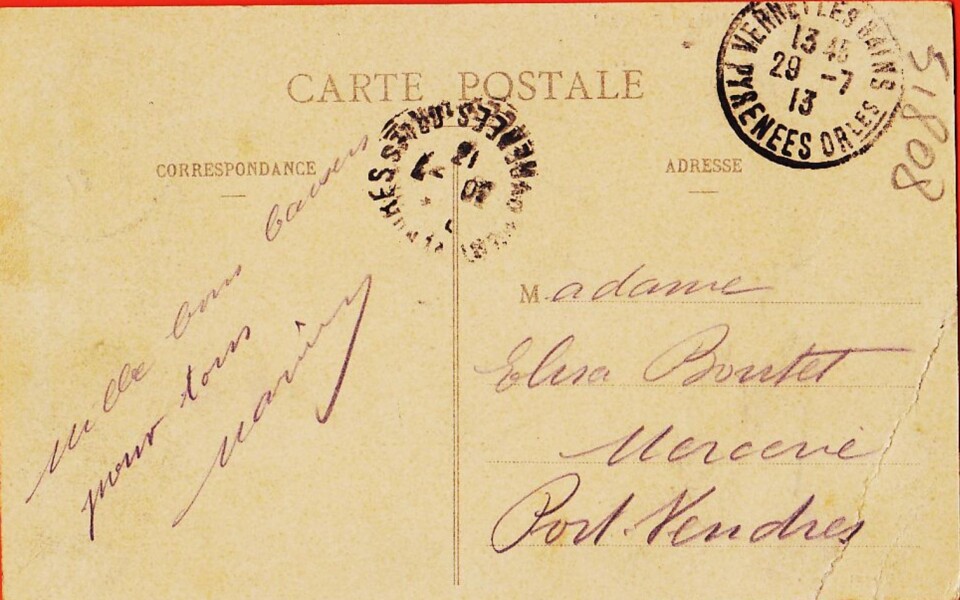 CARTE POSTALE
CORRESPONDANCE
ADRESSE
VERNET LES BAINS
13 45
29 -7
13
PYRENEES ORLES
51808
Mille bons baisers
pour tous
PYRENEES-OR
Madame
Elisa Boutet
Mercerie
Port-Vendres